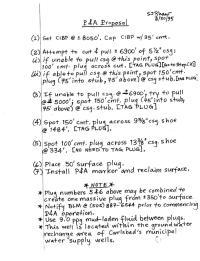 P&A Proposal
(1) Set CIBP @ ± 8050'. Cap CIBP w/ 35' cmt.
(2) Attempt to cut & pull ± 6900' of 5½" csg:
(i) if unable to pull csg @ this point, spot
100' cmt. plug across cut. [TAG PLUG]
(ii) if able to pull csg @ this point, spot 150' cmt.
plug (75' into stub, 75' above) @ csg stub. [TAG PLUG]
(3) If unable to pull csg @ ~6900', try to pull
@ ± 5000'; spot 150' cmt. plug (75' into stub,
75' above) @ csg. stub. [TAG PLUG].
(4) Spot 150' cmt. plug across 9⅝" csg shoe
@ 1484'. [TAG PLUG].
(5) Spot 100' cmt. plug across 13⅜" csg shoe
@ 334'. [NO NEED TO TAG PLUG].
(6) Place 50' surface plug.
(7) Install P&A marker and reclaim surface.
* NOTE *
* Plug numbers 5 & 6 above may be combined to
create one massive plug from ± 350' to surface
* Notify BLM @ (505) 887-6544 prior to commencing
P&A operation.
* Use 9.0 ppg mud-laden fluid between plugs.
* This well is located within the groundwater
recharge area of Carlsbad's municipal
water supply wells.